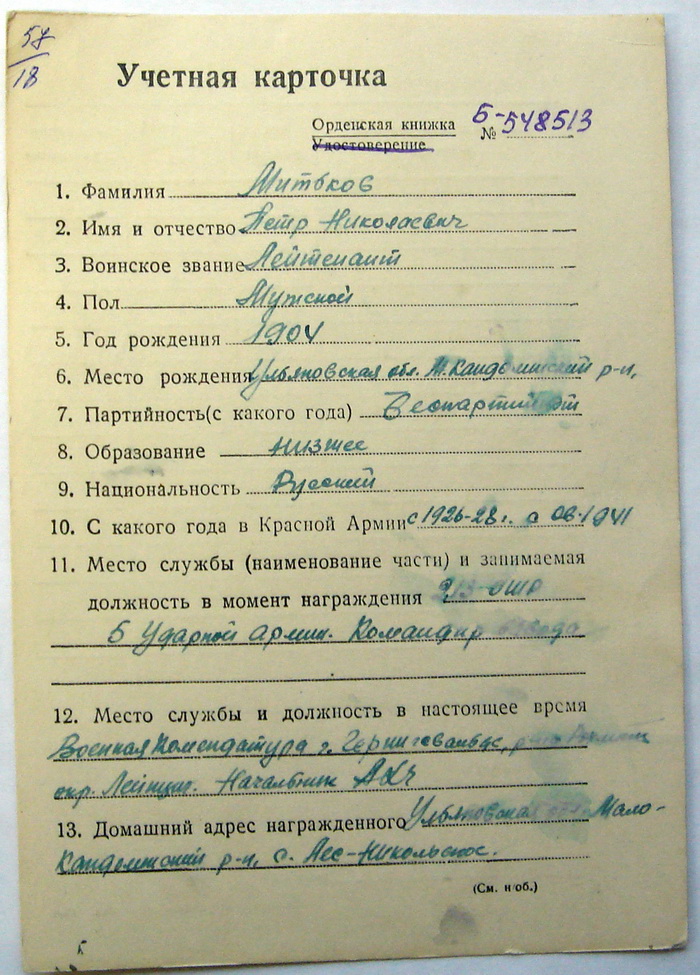 57
18
Учетная карточка
Орденская книжка
Удостоверение
№ Б-548513
1. Фамилия Митьков
2. Имя и отчество Петр Николаевич
3. Воинское звание Лейтенант
4. Пол Мужской
5. Год рождения 1904
6. Место рождения Ульяновская обл. М.Кандолинский р-н,
7. Партийность(с какого года) Беспартийный
8. Образование низшее
9. Национальность Русский
10. С какого года в Красной Армии с 1926-28 г. с 08-1941
11. Место службы (наименование части) и занимаемая
должность в момент награждения 213 ОШР
5 Ударной армии. Командир взвода
12. Место службы и должность в настоящее время
Военная Комендатура г.
окр. Лейпциг. Начальник АХЧ
13. Домашний адрес награжденного Ульяновская обл. Мало-
Кандалинский р-н, с. Лес-Никольское.
(См. н/об.)